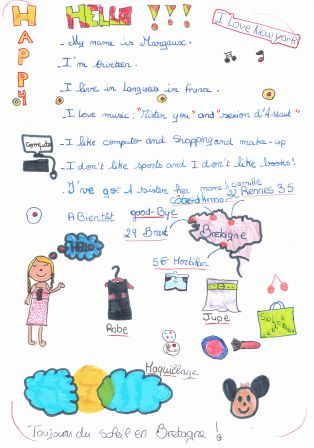 HELLO !!!
I Love New york
HAPPY
- My name is Margaux.
- I'm thirteen.
I live in Langueux in France.
I love music : "Mister you" and "sexion d'Assaut"
Computer
- I like computer and shopping and make-up
- I don't like sports and I don't like books!
I've got 1 sister her name's camille
22 Rennes 35
A Bientôt good-Bye
29 Brest
Bretagne
Hello
56 Morbihan
Robe
Jupe
Maquillage
Toujours du soleil en Bretagne !